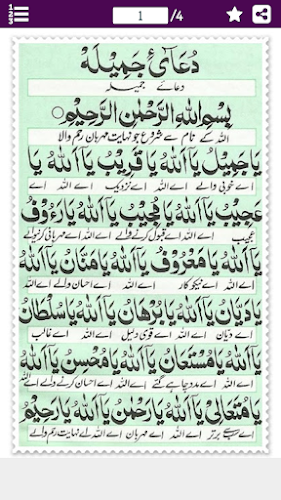 1 /4
دُعَائِ جَمِيْلَه
دعائے جمیلہ
بِسْمِ اللهِ الرَّحْمٰنِ الرَّحِيْمِ
اللہ کے نام سے شروع جو نہایت مہربان رحم والا
يَا جَمِيْلُ يَا اَللهُ يَا قَرِيْبُ يَا اَللهُ يَا
اے خوبی والے اے اللہ اے نزدیک اے اللہ اے
عَجِيْبُ يَا اَللهُ يَا مُجِيْبُ يَا اَللهُ يَا رَءُوْفُ
عجیب اے اللہ اے قبول کرنے والے اے اللہ اے مہربانی کرنیوالے
يَا اَللهُ يَا مَعْرُوْفُ يَا اَللهُ يَا مَنَّانُ يَا اَللهُ
اے اللہ اے نیکوکار اے اللہ اے احسان والے اے اللہ
يَا دَيَّانُ يَا اَللهُ يَا بُرْهَانُ يَا اَللهُ يَا سُلْطَانُ
اے دیان اے اللہ اے قوی دلیل اے اللہ اے غالب
يَا اَللهُ يَا مُسْتَعَانُ يَا اَللهُ يَا مُحْسِنُ يَا اَللهُ
اے اللہ اے مدد چاہے گئے اے اللہ اے احسان کرنے والے اے اللہ
يَا مُتَعَالِيْ يَا اَللهُ يَا رَحْمٰنُ يَا اَللهُ يَا رَحِيْمُ
اے سب سے برتر اے اللہ اے مہربان اے اللہ اے نہایت رحم والے